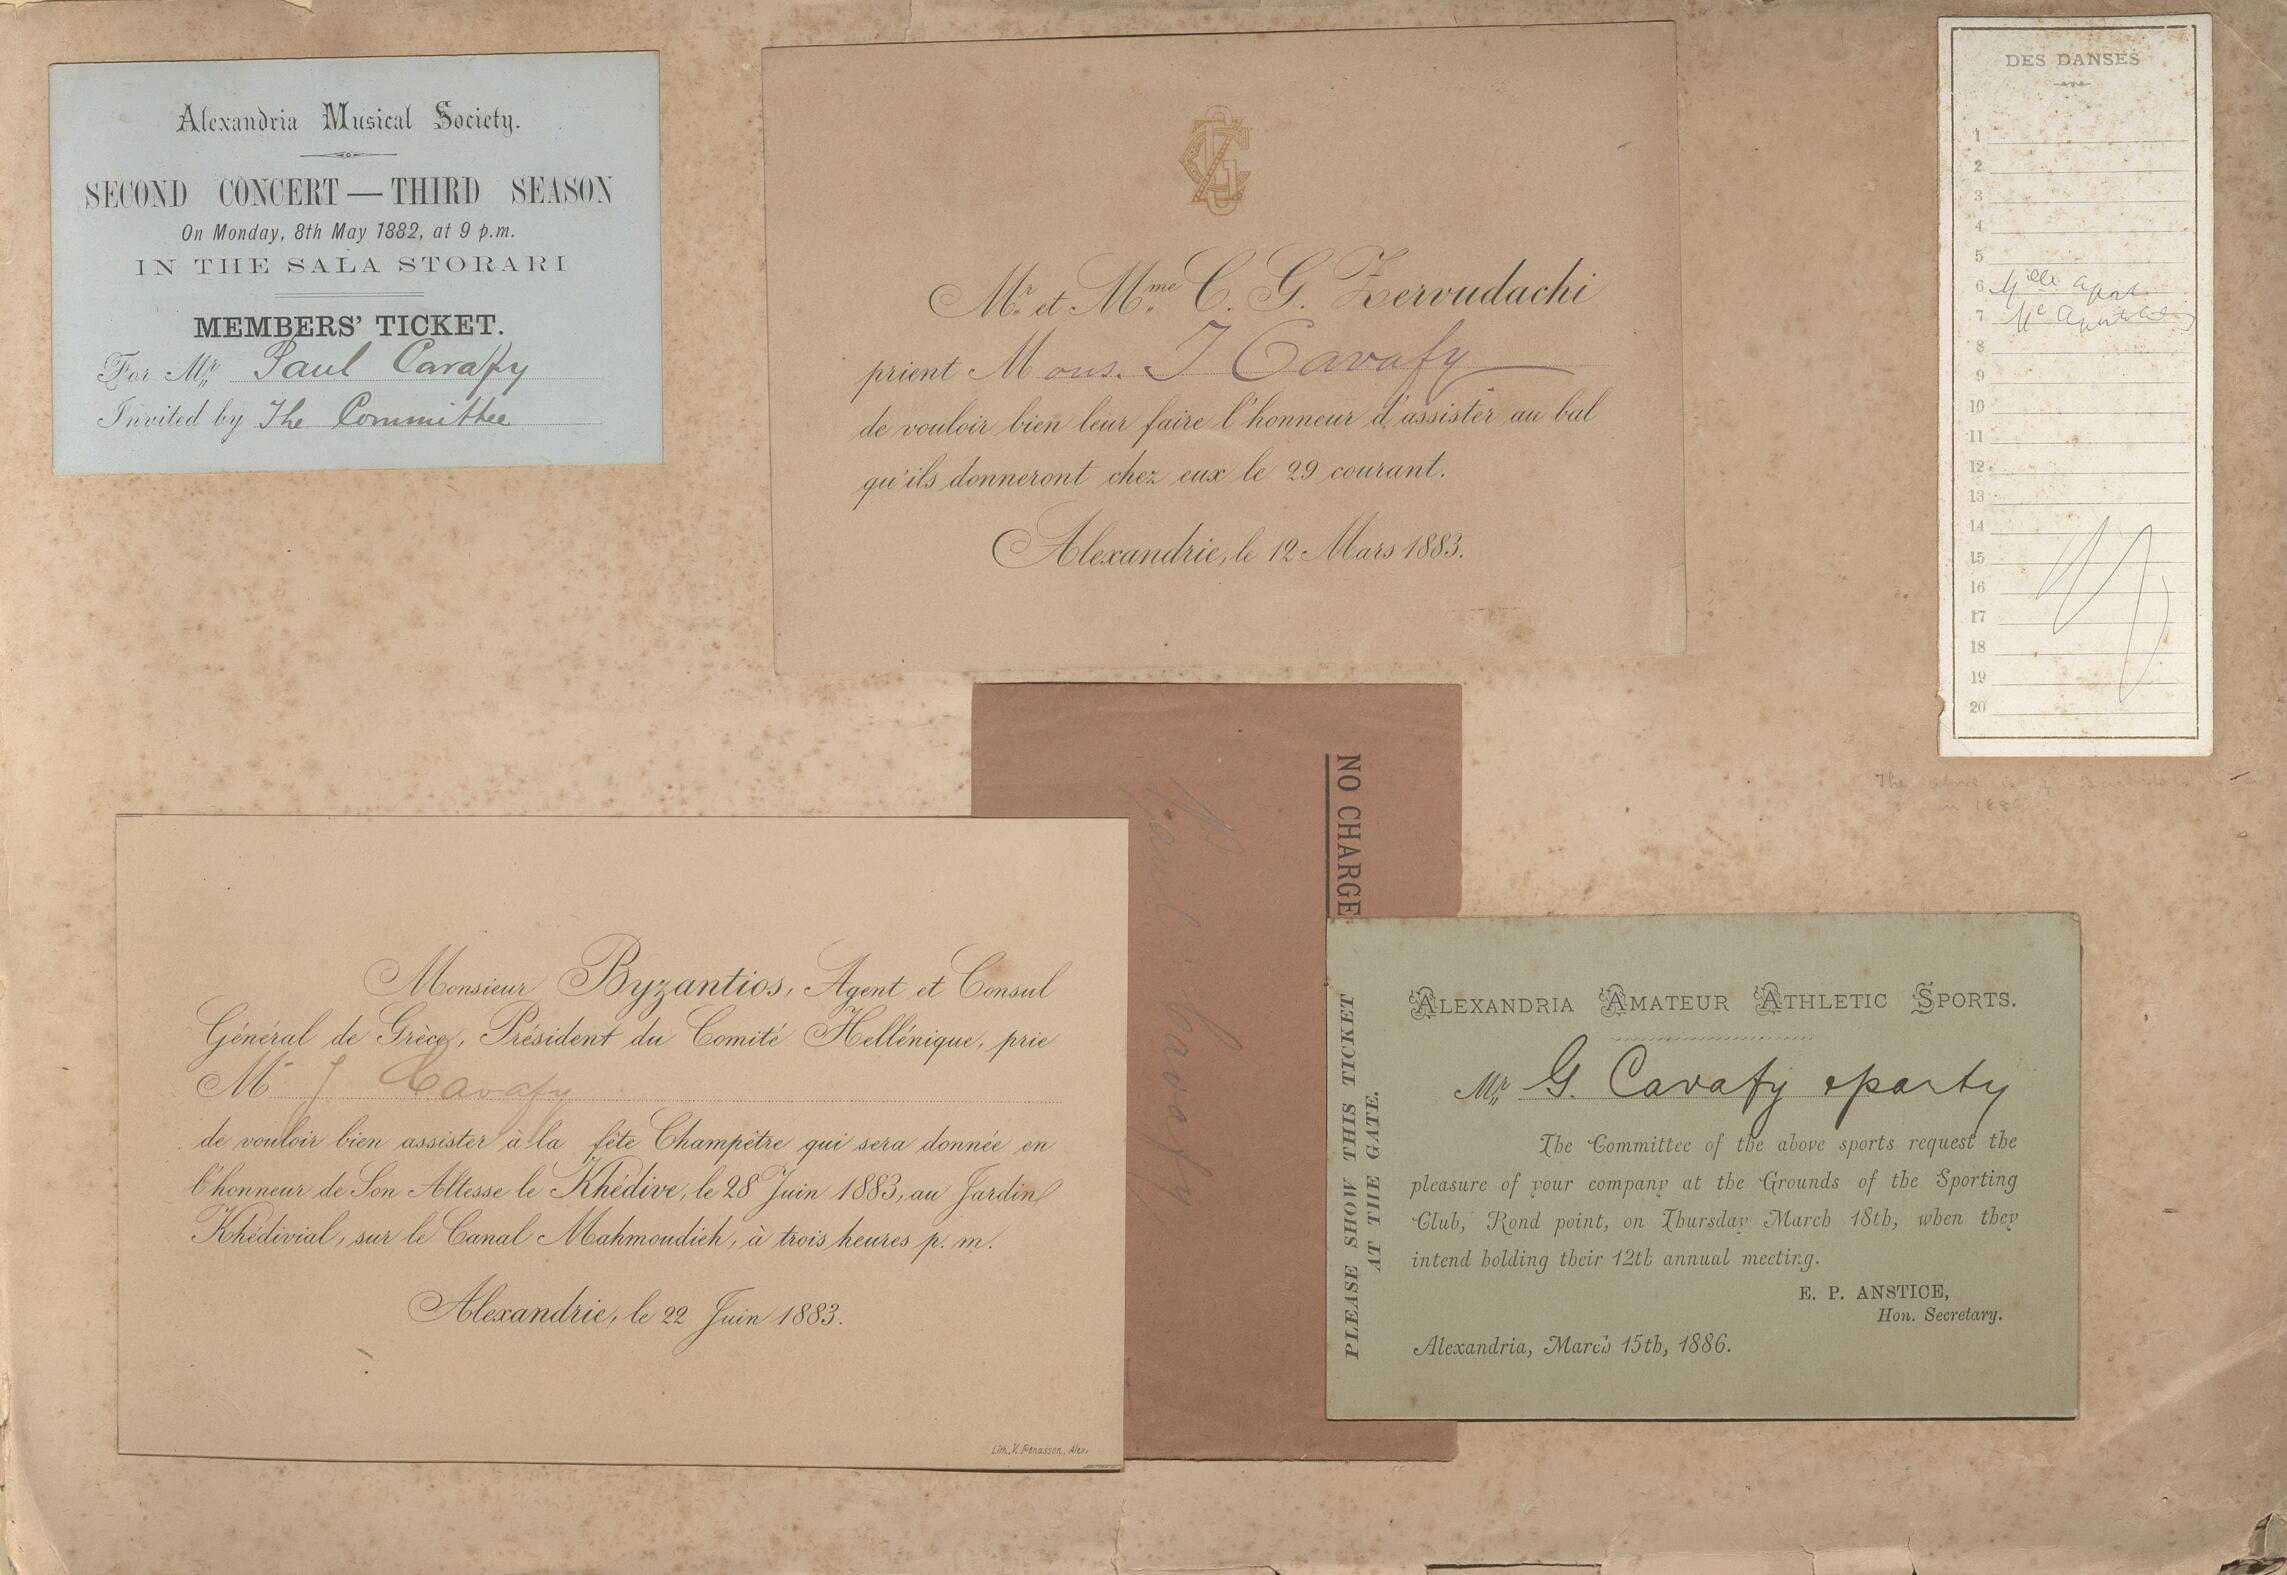 Alexandria Musical Society.
SECOND CONCERT — THIRD SEASON
On Monday, 8th May 1882, at 9 p.m.
IN THE SALA STORARI
MEMBERS' TICKET.
For Mr. Paul Cavafy
Invited by The Committee
CGZ
Mr. et Mme. C. G. Zervudachi
prient Mons. J Cavafy
de vouloir bien leur faire l'honneur d'assister au bal
qu'ils donneront chez eux le 29 courant.
Alexandrie, le 12 Mars 1883.
DES DANSES
1
2
3
4
5
6 Mlle
7 Me
8
9
10
11
12
13
14
15
16
17
18
19
20
The above is
in
NO CHARGE
Paul Cavafy
Monsieur Byzantios, Agent et Consul
Général de Grèce, Président du Comité Hellénique, prie
Mr J Cavafy
de vouloir bien assister à la fête Champêtre qui sera donnée en
l'honneur de Son Altesse le Khédive, le 28 Juin 1883, au Jardin
Khédivial, sur le Canal Mahmoudieh, à trois heures p. m.
Alexandrie, le 22 Juin 1883.
Lith. V. Penasson, Alex.
PLEASE SHOW THIS TICKET
AT THE GATE.
ALEXANDRIA AMATEUR ATHLETIC SPORTS.
Mr. G. Cavafy & party
The Committee of the above sports request the
pleasure of your company at the Grounds of the Sporting
Club, Rond point, on Thursday March 18th, when they
intend holding their 12th annual meeting.
E. P. ANSTICE,
Hon. Secretary.
Alexandria, March 15th, 1886.